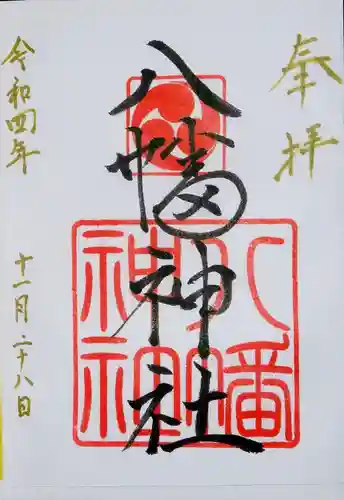 奉拝
八幡神社
八幡
神社
令和四年
十一月二十八日